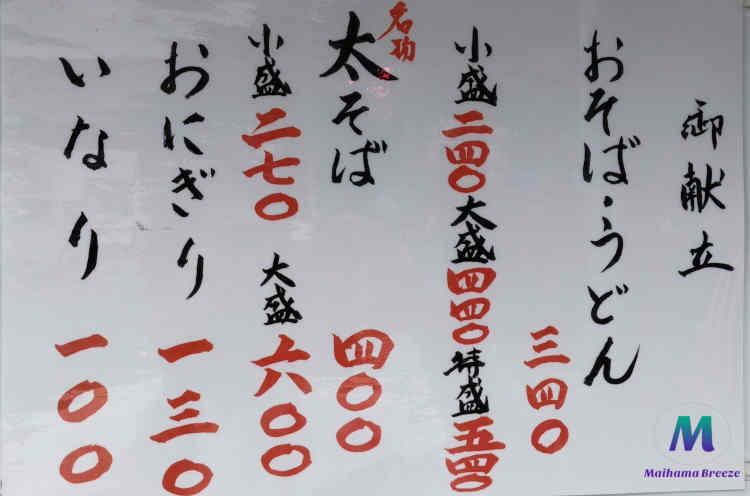 御献立
おそば・うどん
三四〇
小盛 二四〇 大盛 四四〇 特盛 五四〇
名物
太そば 四〇〇
小盛 二七〇 大盛 六〇〇
おにぎり 一三〇
いなり 一〇〇
M
Maihama Breeze